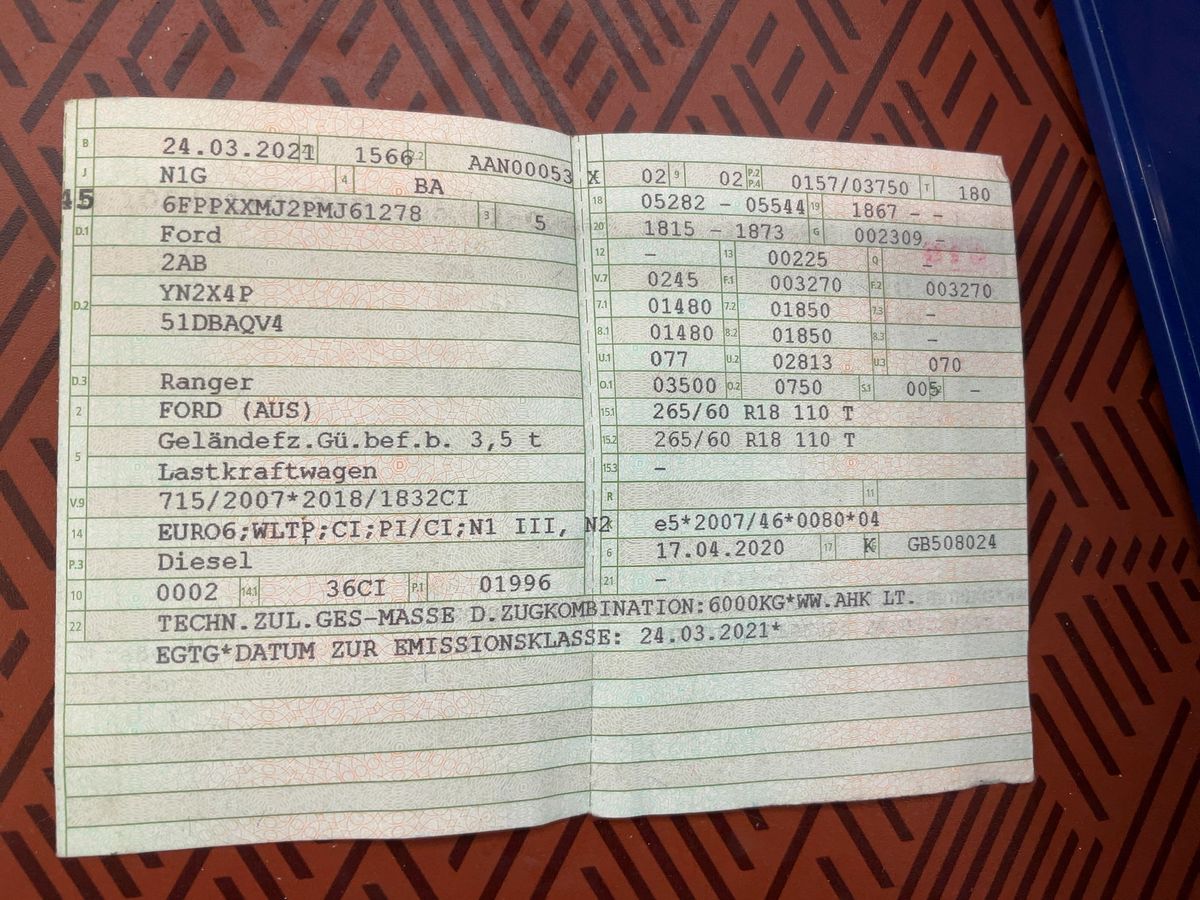 B 24.03.2021 2.1 1566 2.2 AAN00053 X
J N1G 4 BA
45 6FPPXXMJ2PMJ61278 3 5
D.1 Ford
2AB
D.2 YN2X4P
51DBAQV4
D.3 Ranger
2 FORD (AUS)
5 Geländefz.Gü.bef.b. 3,5 t
Lastkraftwagen
V.9 715/2007*2018/1832CI
14 EURO6;WLTP;CI;PI/CI;N1 III, N2
P.3 Diesel
10 0002 14.1 36CI P.1 01996
02 9 02 P.2 P.4 0157/03750 T 180
18 05282 - 05544 19 1867 - -
20 1815 - 1873 G 002309 -
12 - 13 00225 Q -
V.7 0245 F.1 003270 F.2 003270
7.1 01480 7.2 01850 7.3 -
8.1 01480 8.2 01850 8.3 -
U.1 077 U.2 02813 U.3 070
O.1 03500 O.2 0750 S.1 005 S.2 -
15.1 265/60 R18 110 T
15.2 265/60 R18 110 T
15.3 -
R 11
K e5*2007/46*0080*04
6 17.04.2020 17 K 16 GB508024
21 -
22 TECHN.ZUL.GES-MASSE D.ZUGKOMBINATION:6000KG*WW.AHK LT.
EGTG*DATUM ZUR EMISSIONSKLASSE: 24.03.2021*